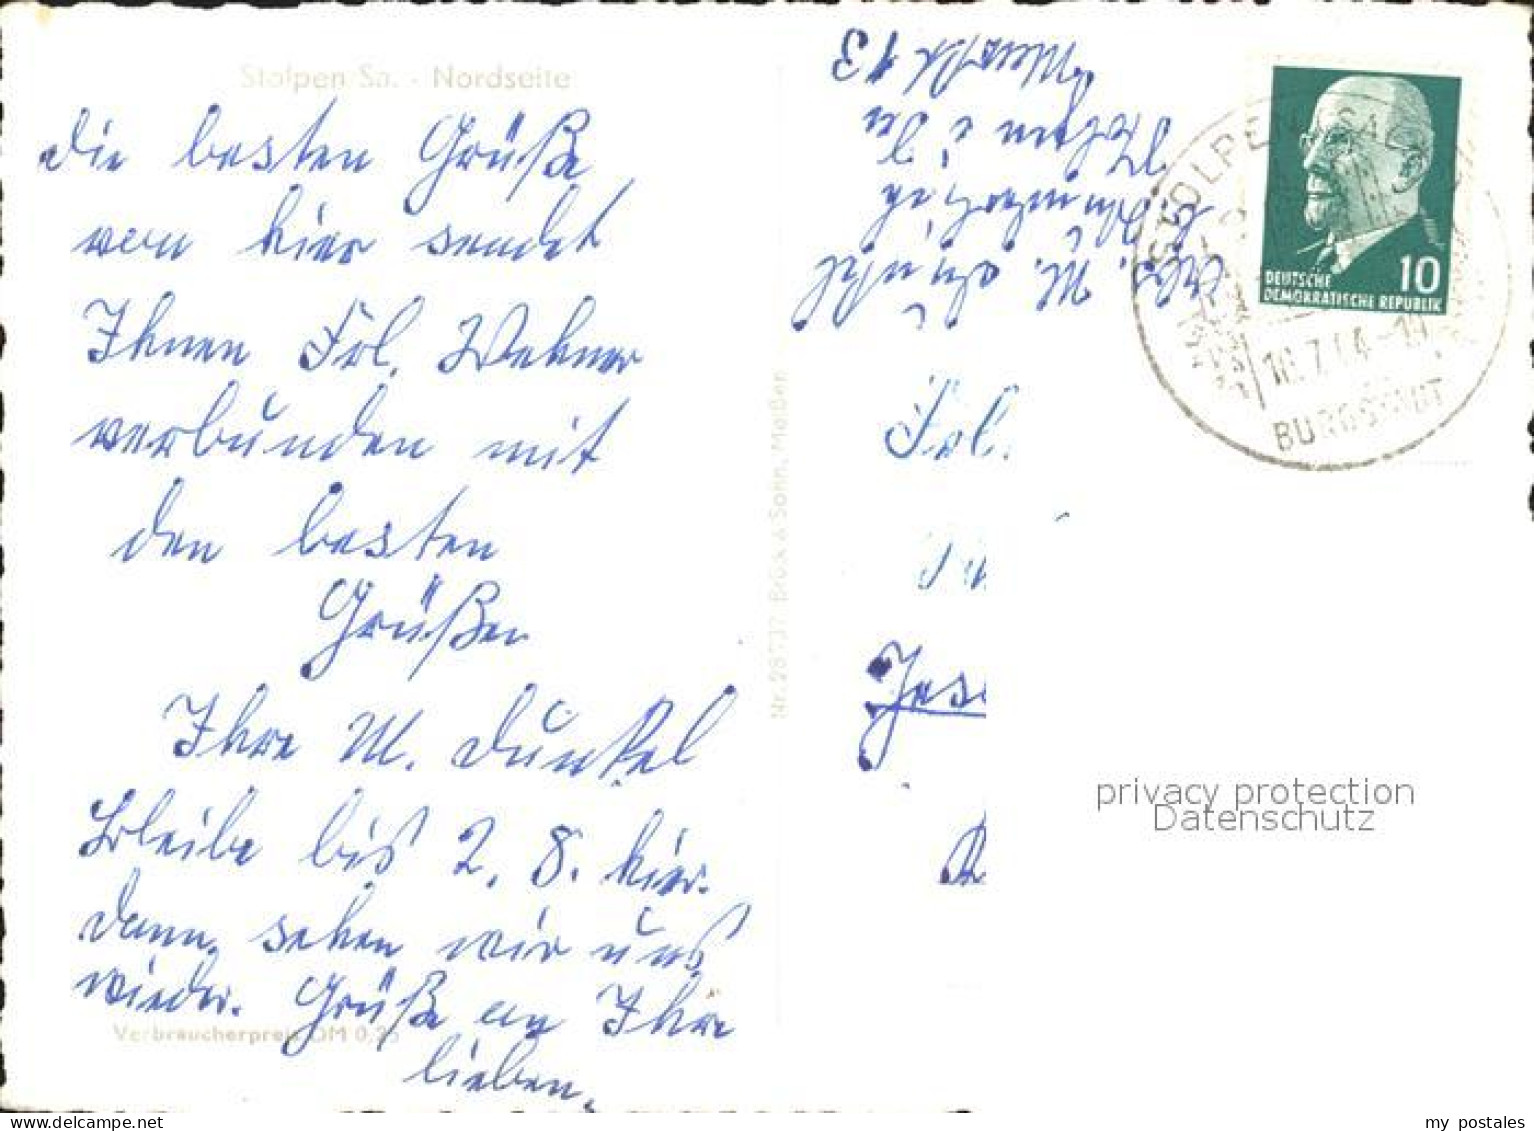 Stolpen Sa. - Nordseite
Die besten Grüße
von hier sendet
Ihnen Frl. Wehner
verbunden mit
den besten
Grüßen
Ihre M. Dunkel
Bleibe bis 2. 8. hier.
Dann sehen wir uns
wieder. Grüße an Ihre
lieben.
Verbraucherpreis DM 0,25
Nr. Brück & Sohn, Meißen
Abs. M. Dunkel
Stolpen
13
Frl.
DEUTSCHE
DEMOKRATISCHE REPUBLIK
10
STOLPEN (SACHS)
BURGSTADT
privacy protection
Datenschutz
my postales